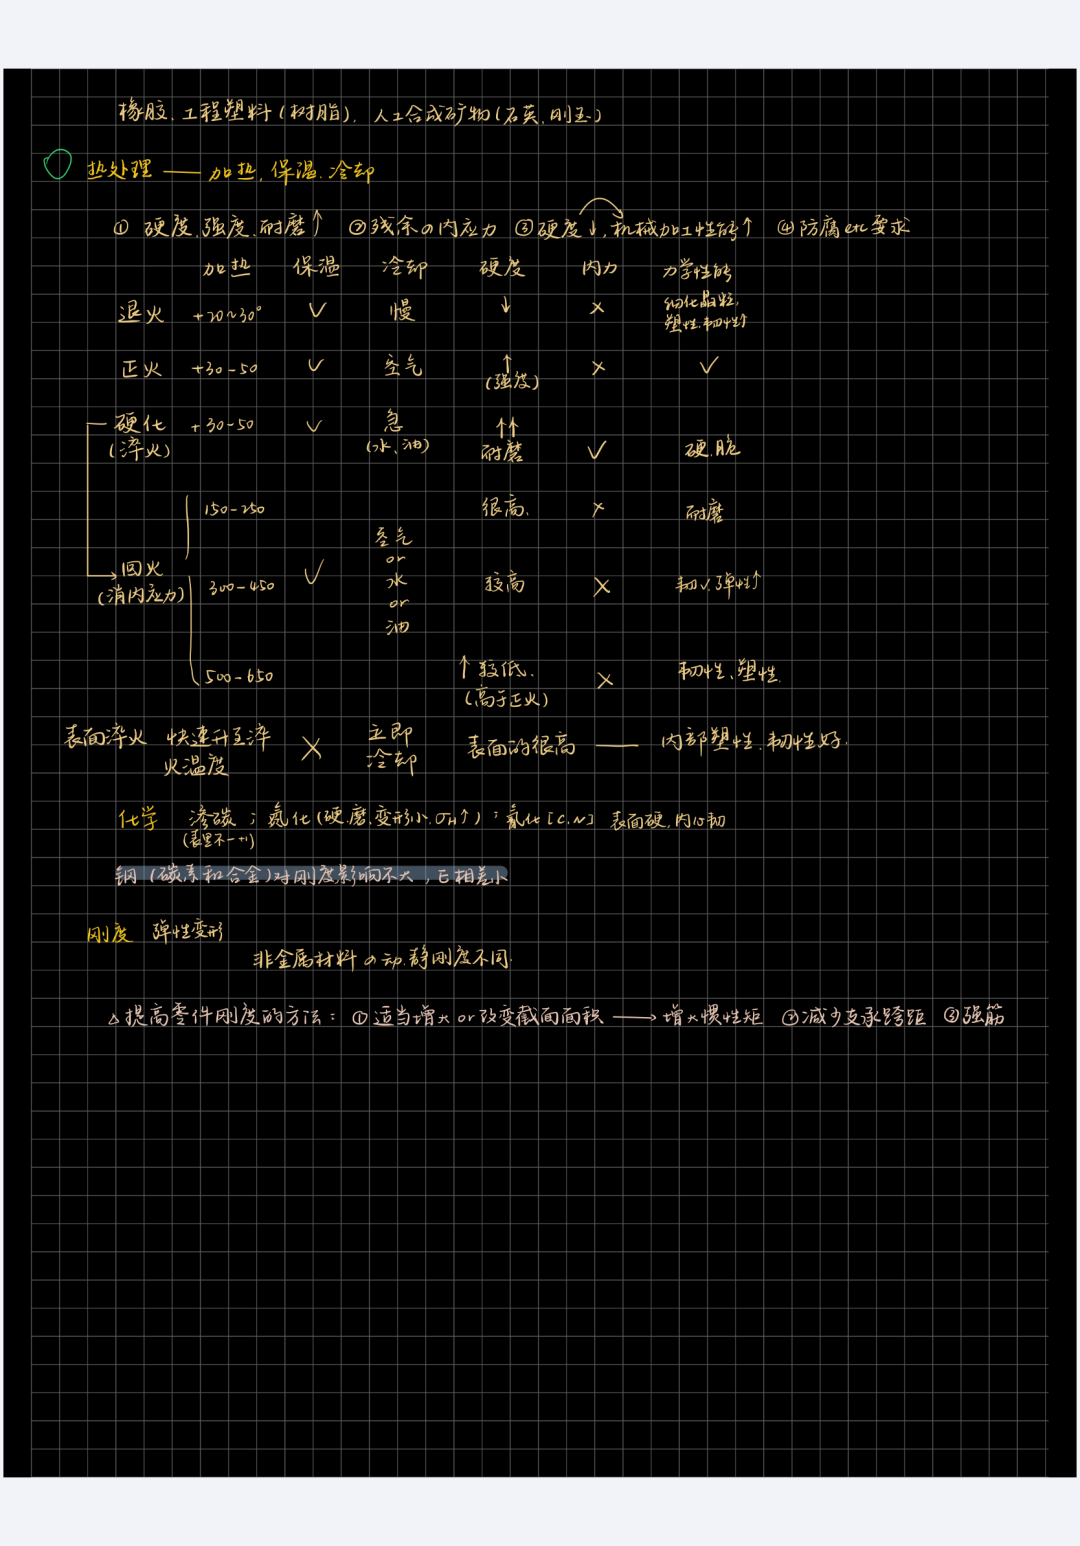 橡胶、工程塑料(树脂)、人工合成矿物(石英、刚玉)
热处理 —— 加热、保温、冷却
① 硬度、强度、耐磨↑ ②残余の内应力 ③硬度↓,机械加工性能↑ ④防腐etc要求
加热 保温 冷却 硬度 内力 力学性能
退火 +20~30° ✓ 慢 ↓ × 细化晶粒,
塑性、韧性↑
正火 +30-50 ✓ 空气 ↑ × ✓
(强度)
硬化 +30-50 ✓ 急 ↑↑
(淬火) (水、油) 耐磨 ✓ 硬、脆
150-250 很高、 × 耐磨
空气
or
回火 300-450 ✓ 水 较高 × 韧✓、弹性↑
(消内应力) or
油
500-650 ↑较低、 × 韧性、塑性
(高于正火)
表面淬火 快速升至淬 × 立即 表面的很高 —— 内部塑性、韧性好.
火温度 冷却
化学 渗碳;氮化(硬、磨、变形小、σH↑);氰化[C、N] 表面硬,内心韧
(表里不一)
钢(碳素和合金)对刚度影响不大,E相差小
刚度 弹性变形
非金属材料の动、静刚度不同.
△提高零件刚度的方法:①适当增大or改变截面面积 ⟶ 增大惯性矩 ②减少支承跨距 ③强筋